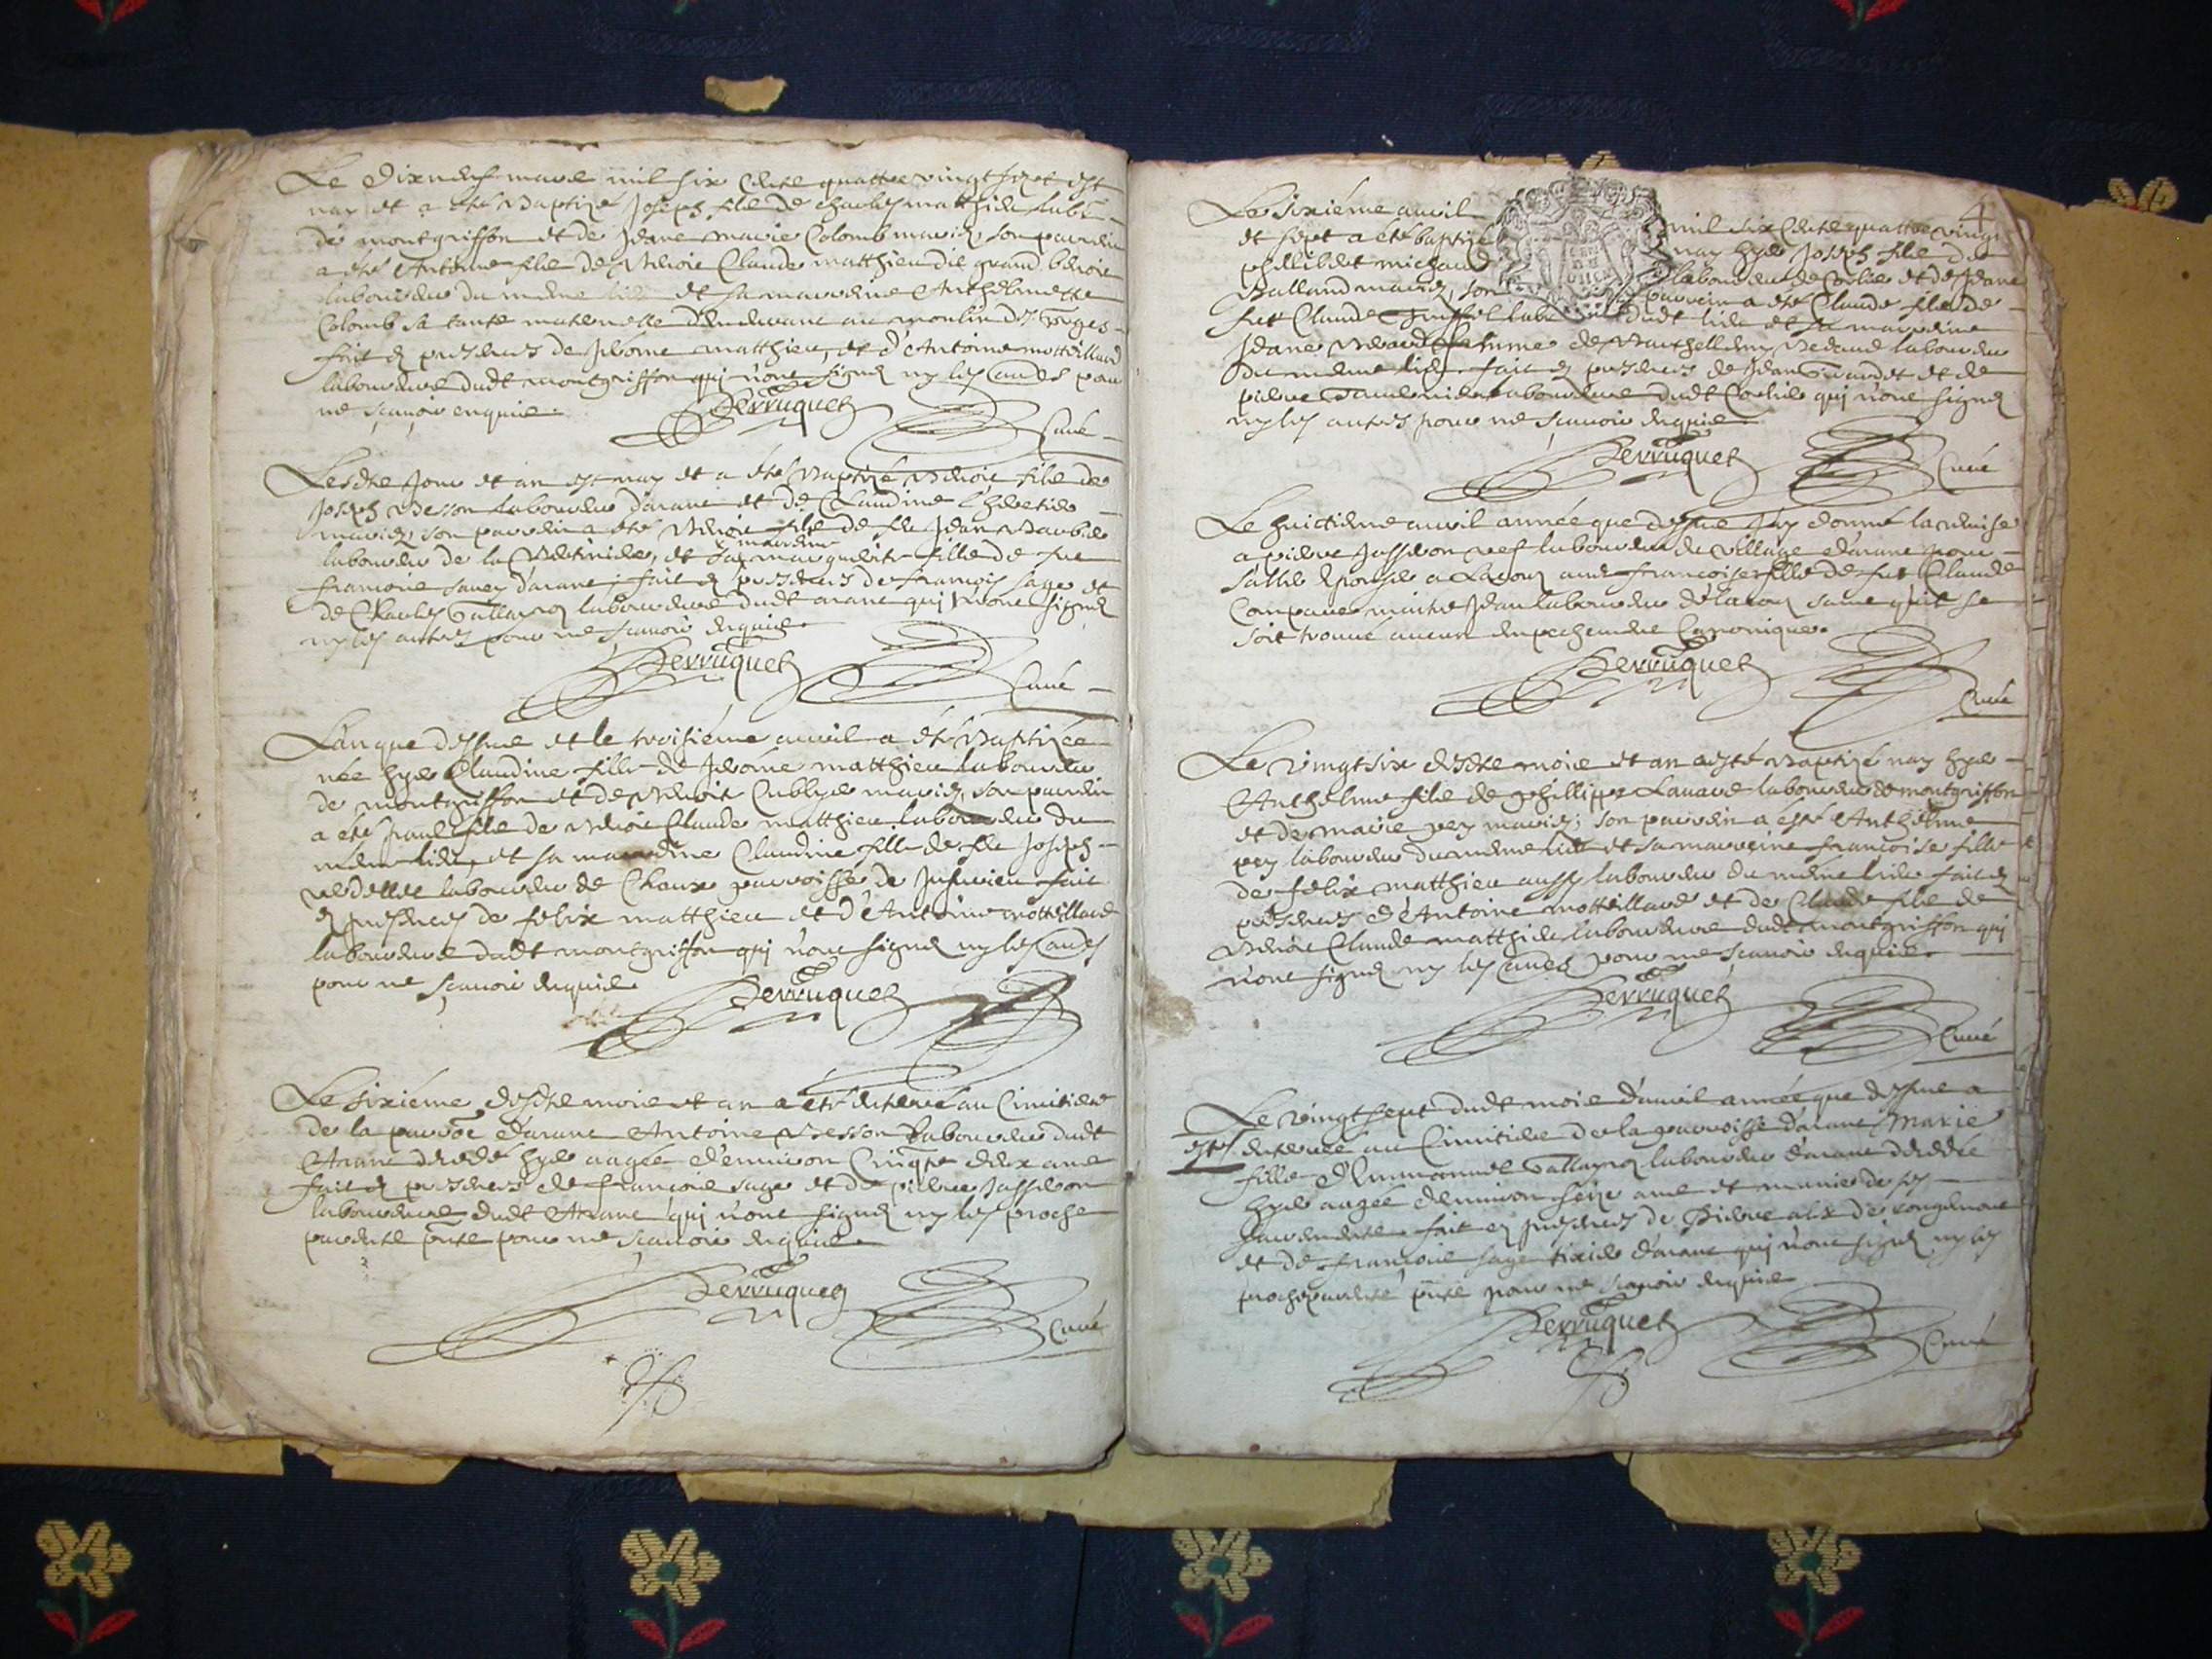 Le dixneuf mars mil six cents quattre vingt sept est
nay et a été Baptizé Joseph fils de charles matthieu lab
de montgriffon et de Jeane marie Colomb mariez, son parrein
a été Antoine fils de Benoit Claude matthieu dit grand benoit
laboureur du même lieu et sa marreine Anthelmette
Colomb sa tante maternelle demeurant au moulin des
fait ez presences de Jerôme matthieu, et d'Antoine mottillard
laboureurs dudt montgriffon qui n'ont signez ny les autres pour
ne sçavoir enquis
Perruquet Curé
Lesdits Jour et an est nay et a été Baptizé Benoit fils de
Joseph Besson laboureur d'arant et de Claudine
mariez, son parrein a été Benoit fils de fu Jean Barbier
marreine
laboureur de la et sa marguerite fille de fut
françois savey d'arant; fait ez presences de françois sage et
de Charles Tallayron laboureurs dudt arant qui n'ont signez
ny les autres pour ne sçavoir enquis
Perruquet Curé
L'an que dessus et le troisiéme avril a été Baptizée
née hyer Claudine fille de Jerôme matthieu laboureur
de montgriffon et de Benoite mariez, son parrein
a été paul fils de Benoit Claude matthieu laboureur du
même lieu, et sa marreine Claudine fille de fu Joseph
laboureur de Chaux parroisse de Jujurieu fait
ez presences de felix matthieu et d'Antoine mottillard
laboureurs dudt montgriffon qui n'ont signez ny les autres
pour ne sçavoir enquis
Perruquet
Le sixiéme desdits mois et an a été enterré au Cimitiere
de la parroe d'arant Antoine Besson laboureur dudt
Arant decedé hyer aagée d'environ Cinqte deux ans
fait ez presences de françois sage et de pierre Jasseron
laboureurs dudt Arant qui n'ont signez ny les proches
parents pnts pour ne sçavoir enquis
Perruquet Curé
4
Le sixiéme avril mil six Cents quattre vingt
et sept a été baptizé nay hyer Joseph fils de
phillibert michaud laboureur de Corlier et de Jeane
Balland mariez, son parrein a été Claude fils de
fut Claude lab dudt lieu et sa marreine
Jeane femme de Barthellemy laboureur
du même lieu, fait ez presences de Jean et de
pierre laboureurs dudt Corlier qui n'ont signez
ny les autres pour ne sçavoir enquis
Perruquet Curé
Le huictieme avril année que dessus J'ay donné la remise
a pierre Jasseron vef laboureur du village d'arant pour
s'aller épouser a Lacoux avec françoise fille de fut Claude
Compare maitre Jean laboureur de lacoux sans quil se
soit trouvé aucun empechement Canonique.
Perruquet Curé
Le vingt six desdits mois et an a esté Baptizé nay hyer
Anthelme fils de phillippe Lavare laboureur de montgriffon
et de marie pey mariez; son parrein a été Anthelme
pey laboureur du même lieu et sa marreine françoise fille
de felix matthieu aussy laboureur du même lieu fait ez
presences d'Antoine mottillard et de Claude fils de
Benoit Claude matthieu laboureurs dudt montgriffon qui
n'ont signez ny les autres pour ne sçavoir enquis
Perruquet Curé
Le vingt sept dudt mois d'avril année que dessus a
esté enterrée au Cimitiere de la parroisse d'arant Marie
fille d'Emmanuel Tallayron laboureur d'arant decedée
hyer aagée d'environ seize ans et munie de ses
sacrements fait ez presences de Pierre alix de rougemont
et de françois sage tixier d'arant qui n'ont signez ny les
proches parents pnts pour ne sçavoir enquis
Perruquet Curé